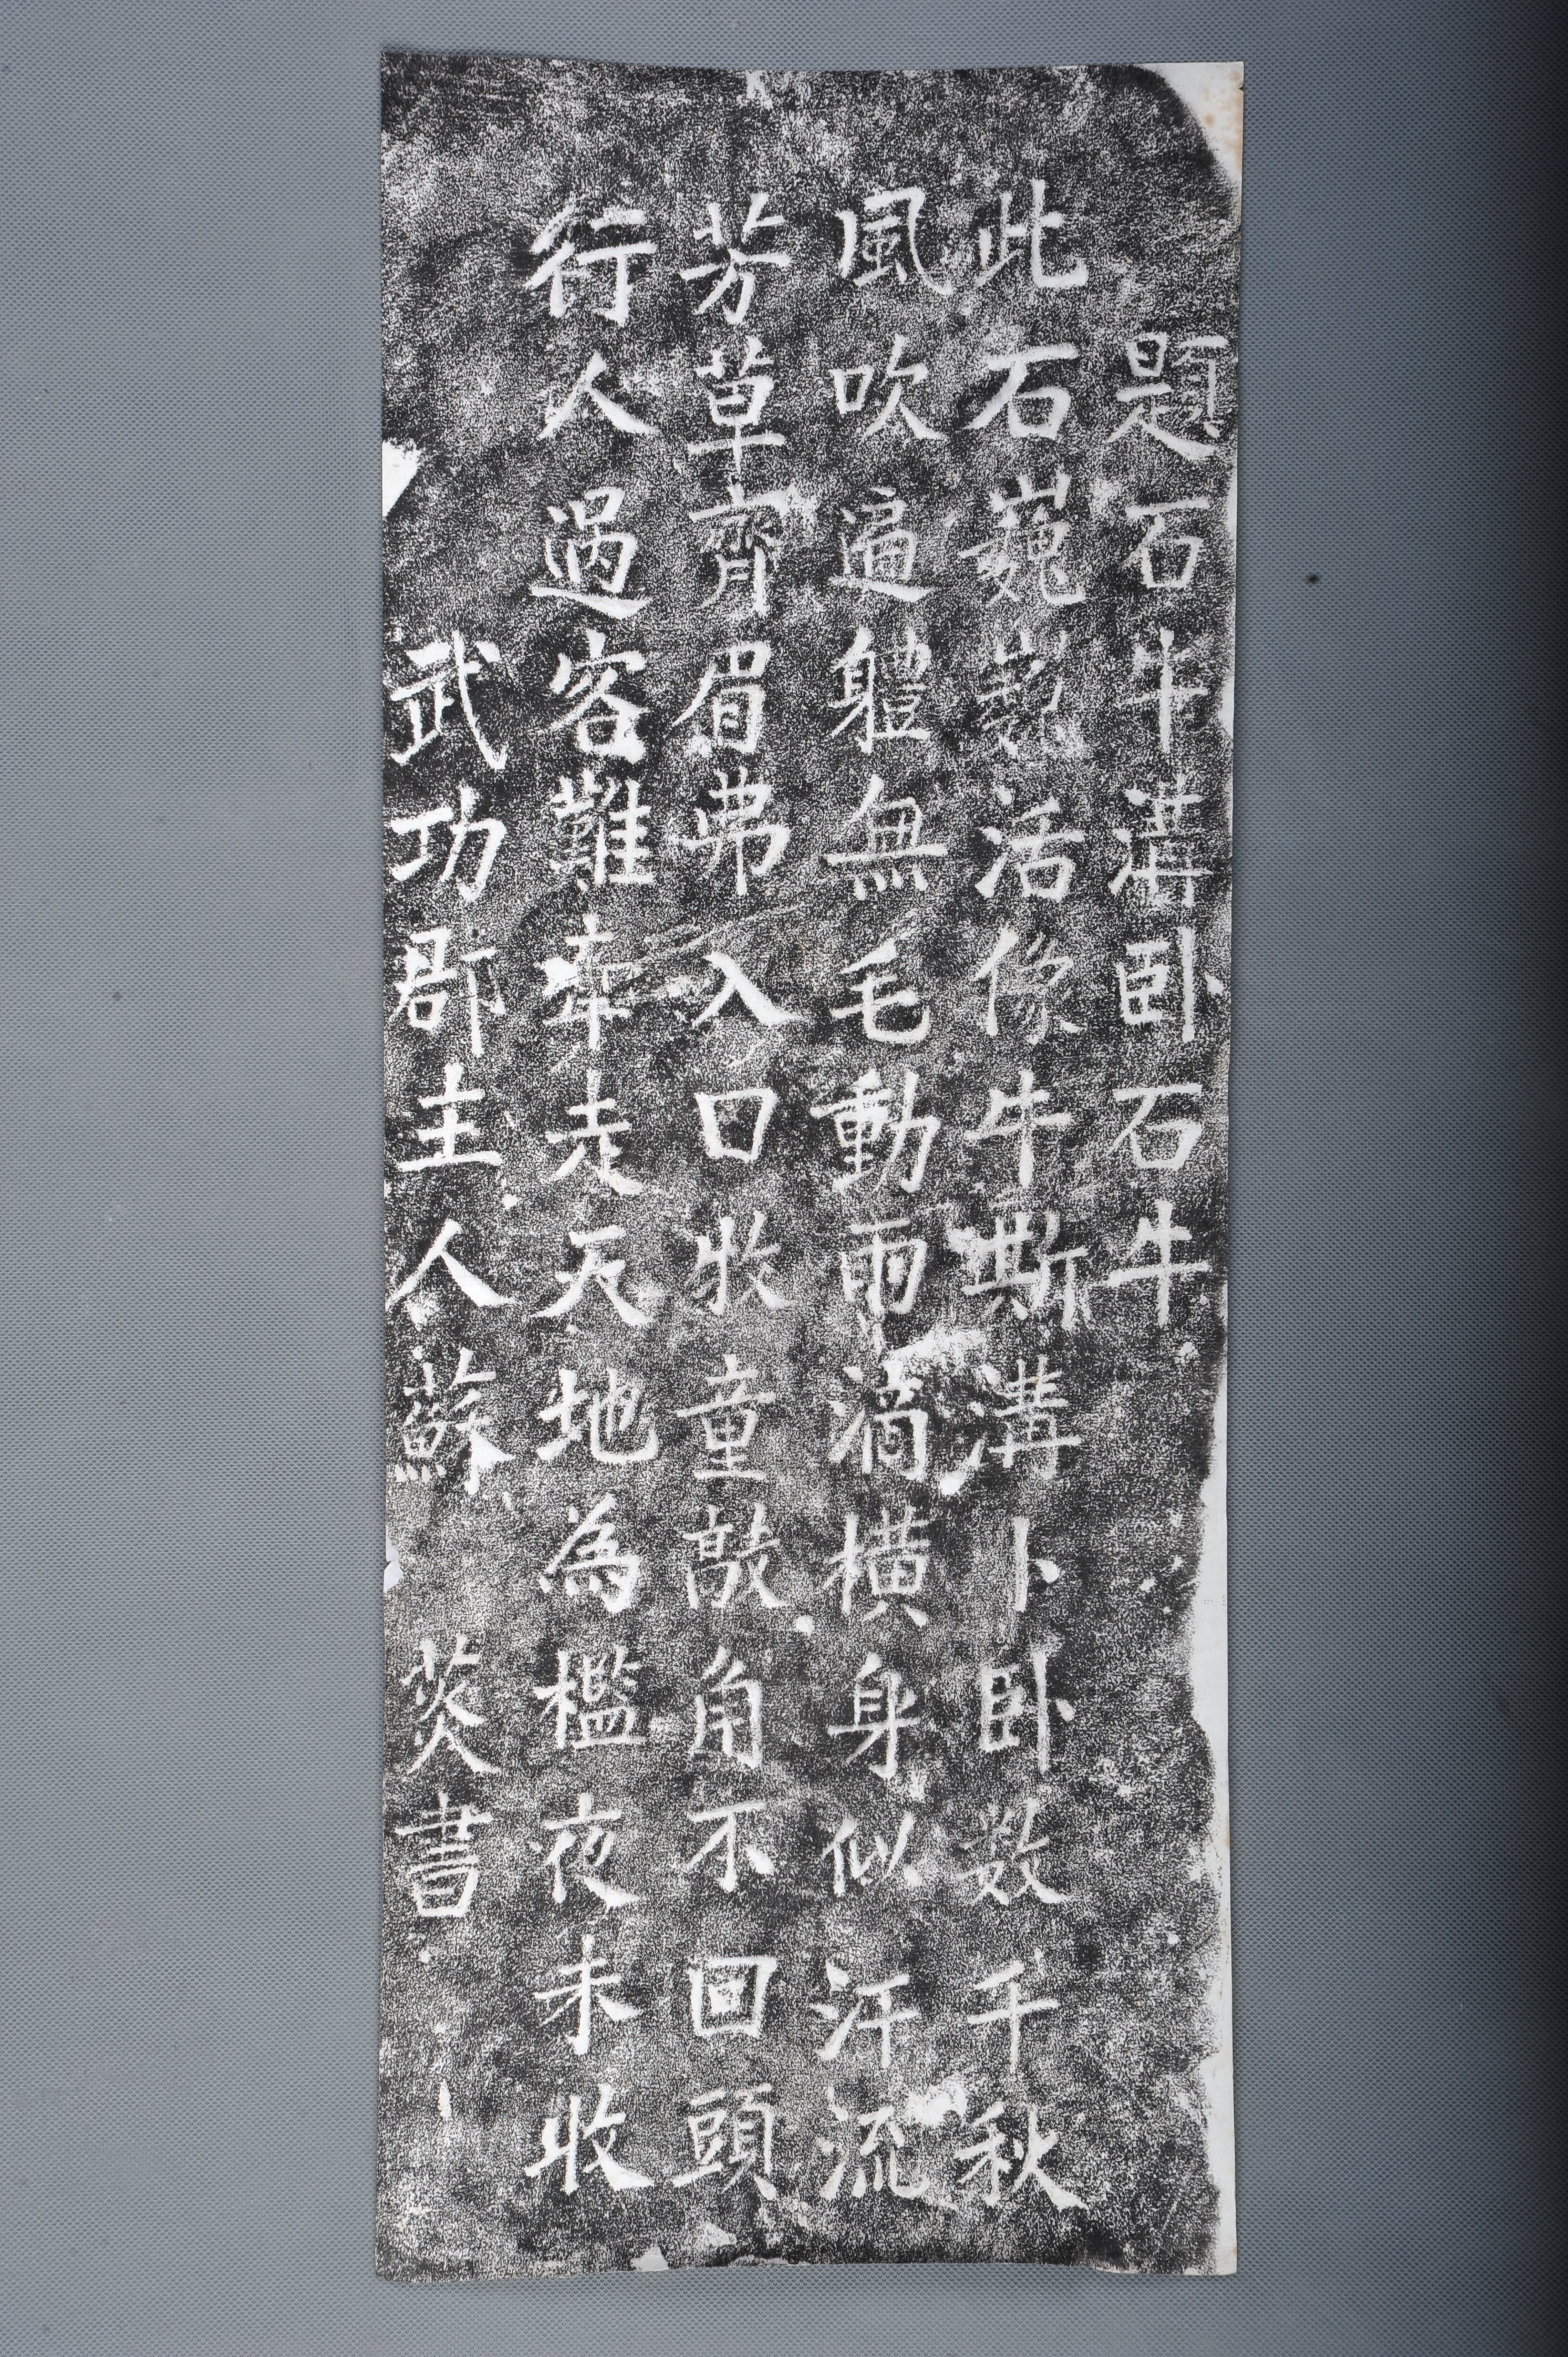 題石牛溝卧石牛
此石巍巍活像牛斯溝卜卧数千秋
風吹遍軆無毛動雨滴横身似汗流
芳草齊眉弗入口牧童敲角不回頭
行人過客難牽走天地為檻夜未收
武功郡主人蘇炎書